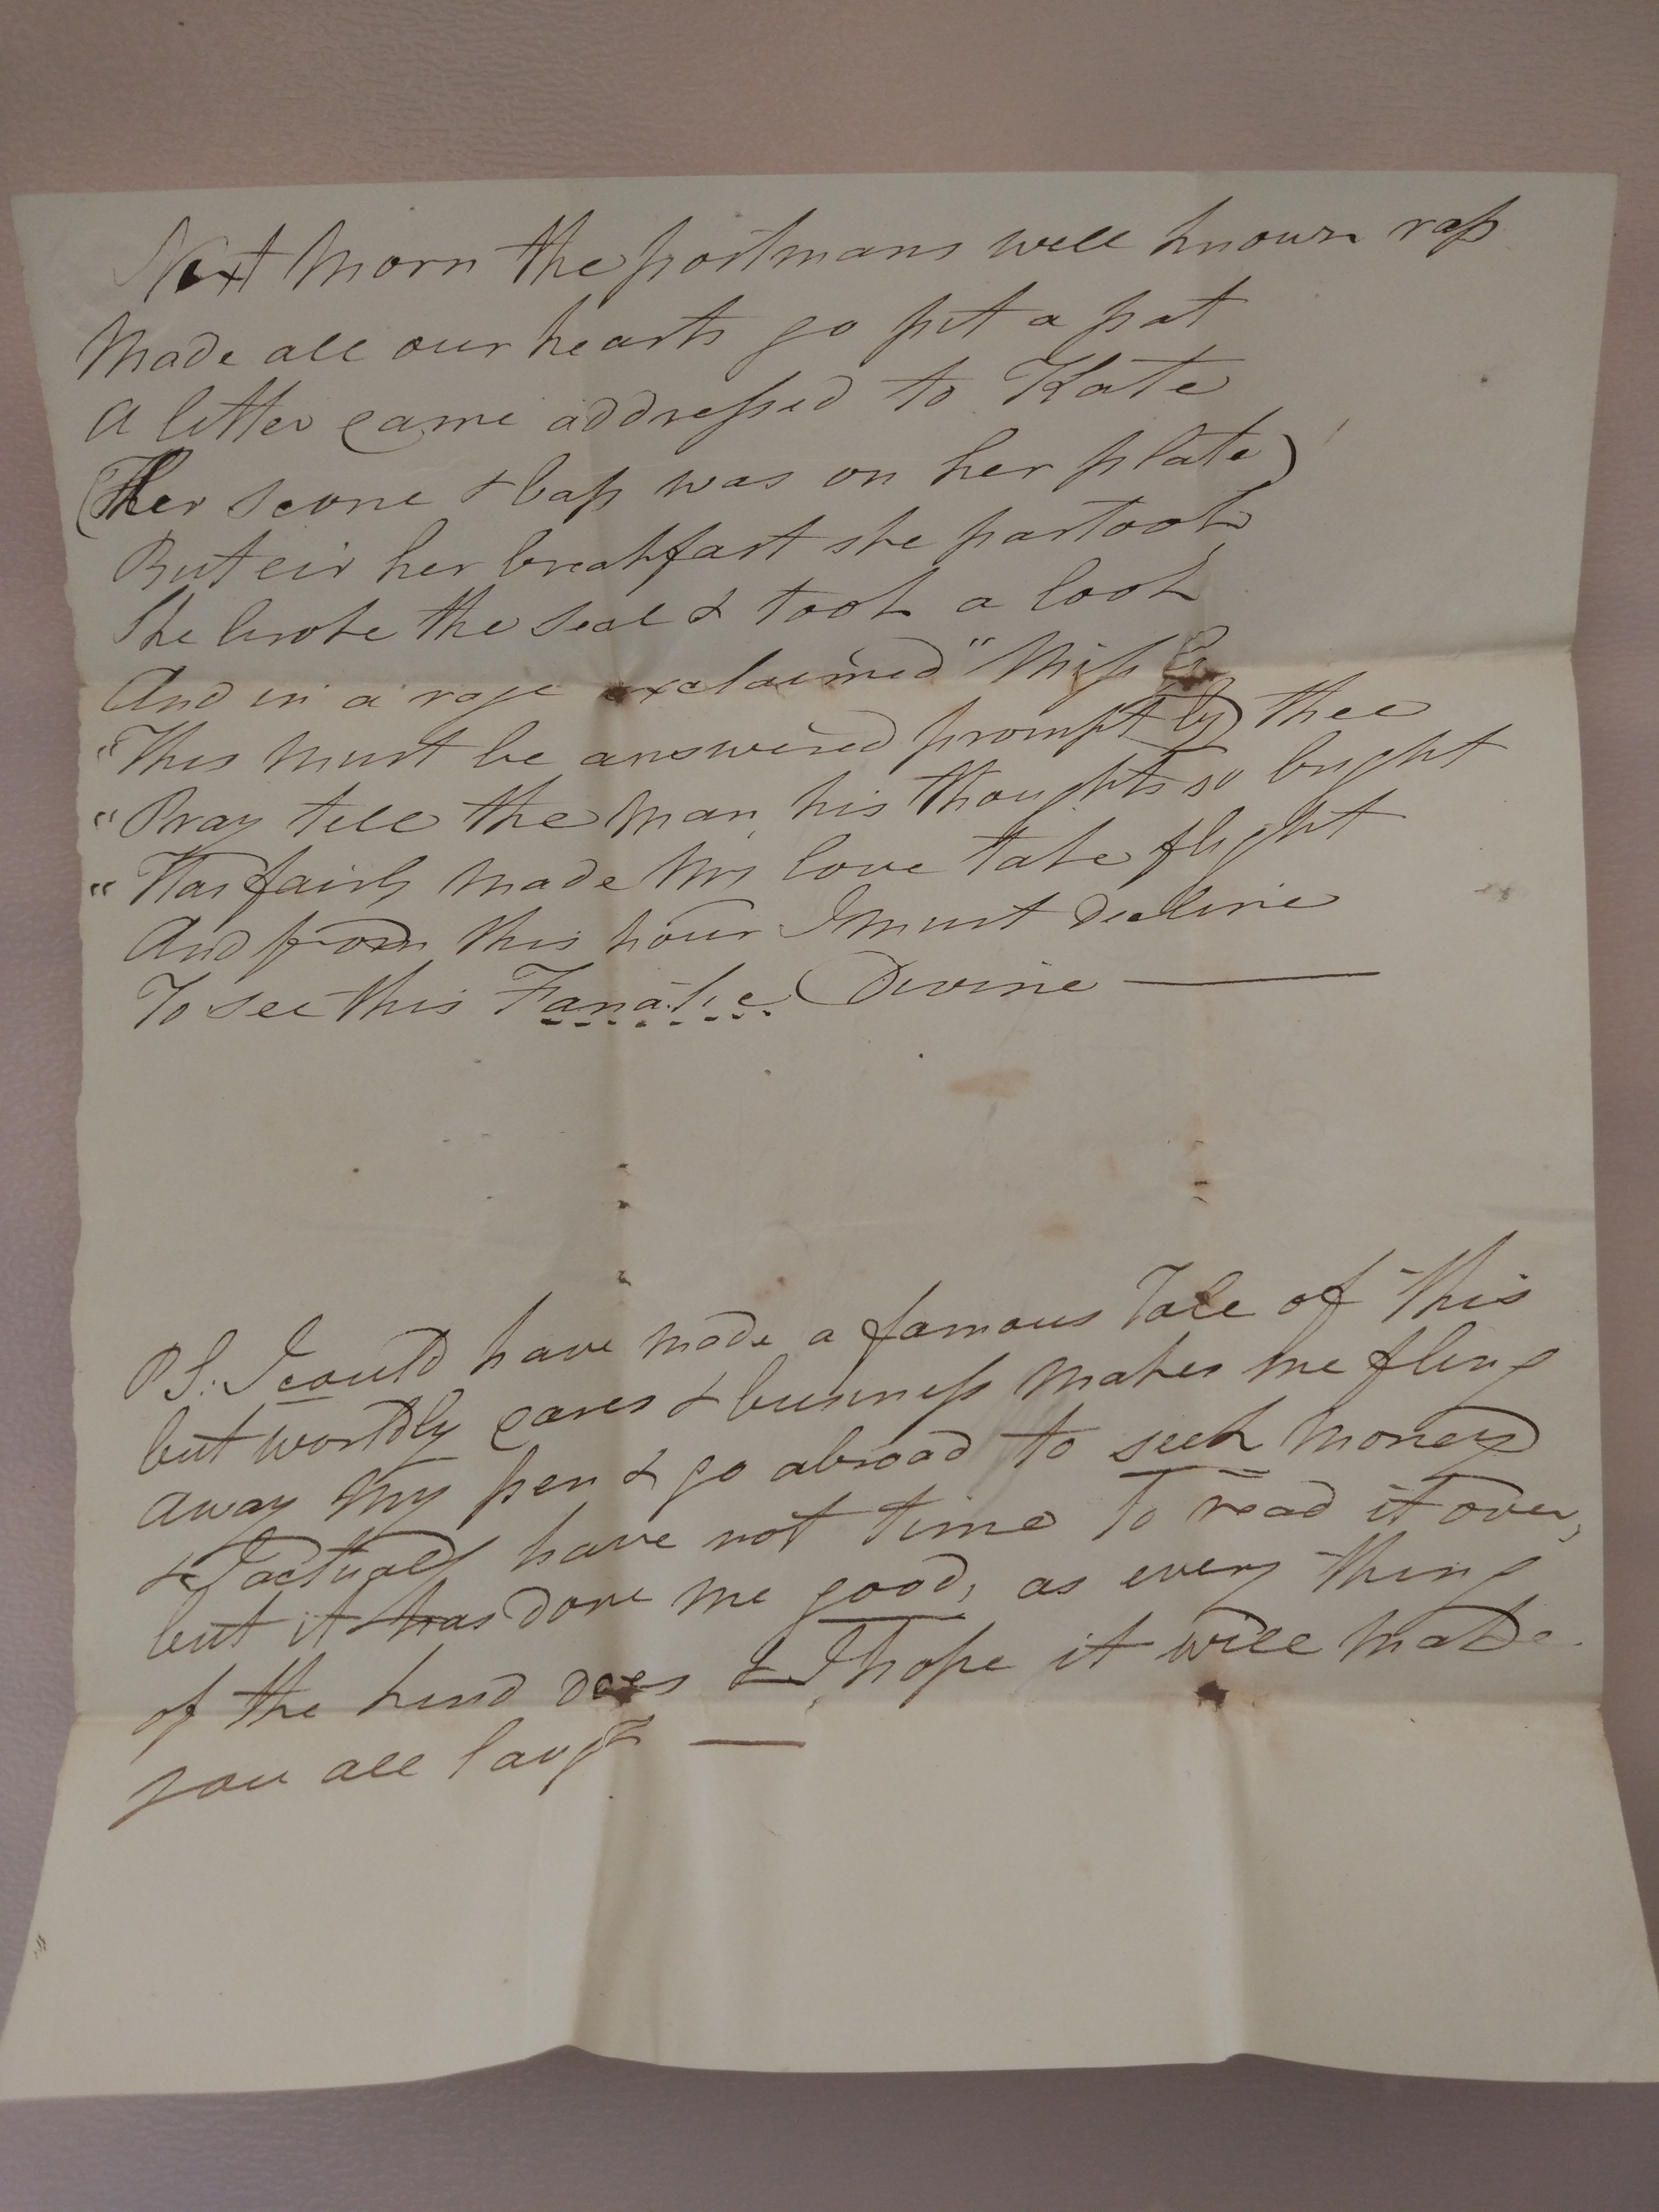 Next Morn the postmans well known rap
Made all our hearts go pit a pat
A letter came addressed to Kate
(Her scone & bap was on her plate)
But eir her breakfast she partook
She broke the seal & took a look
And in a rage exclaimed "Miss
"This must be answered promptly by thee
"Pray tell the man, his thoughts so bright
"Has fairly made My love take flight
And from this hour I must decline
To see this Fanatic Divine —
PS. I could have made a famous Tale of this
but worldly cares & business makes me fling
away My pen & go abroad to seek money
& I actually have not time to read it over,
but it has done me good, as every thing
of the kind does & I hope it will make
you all laugh —